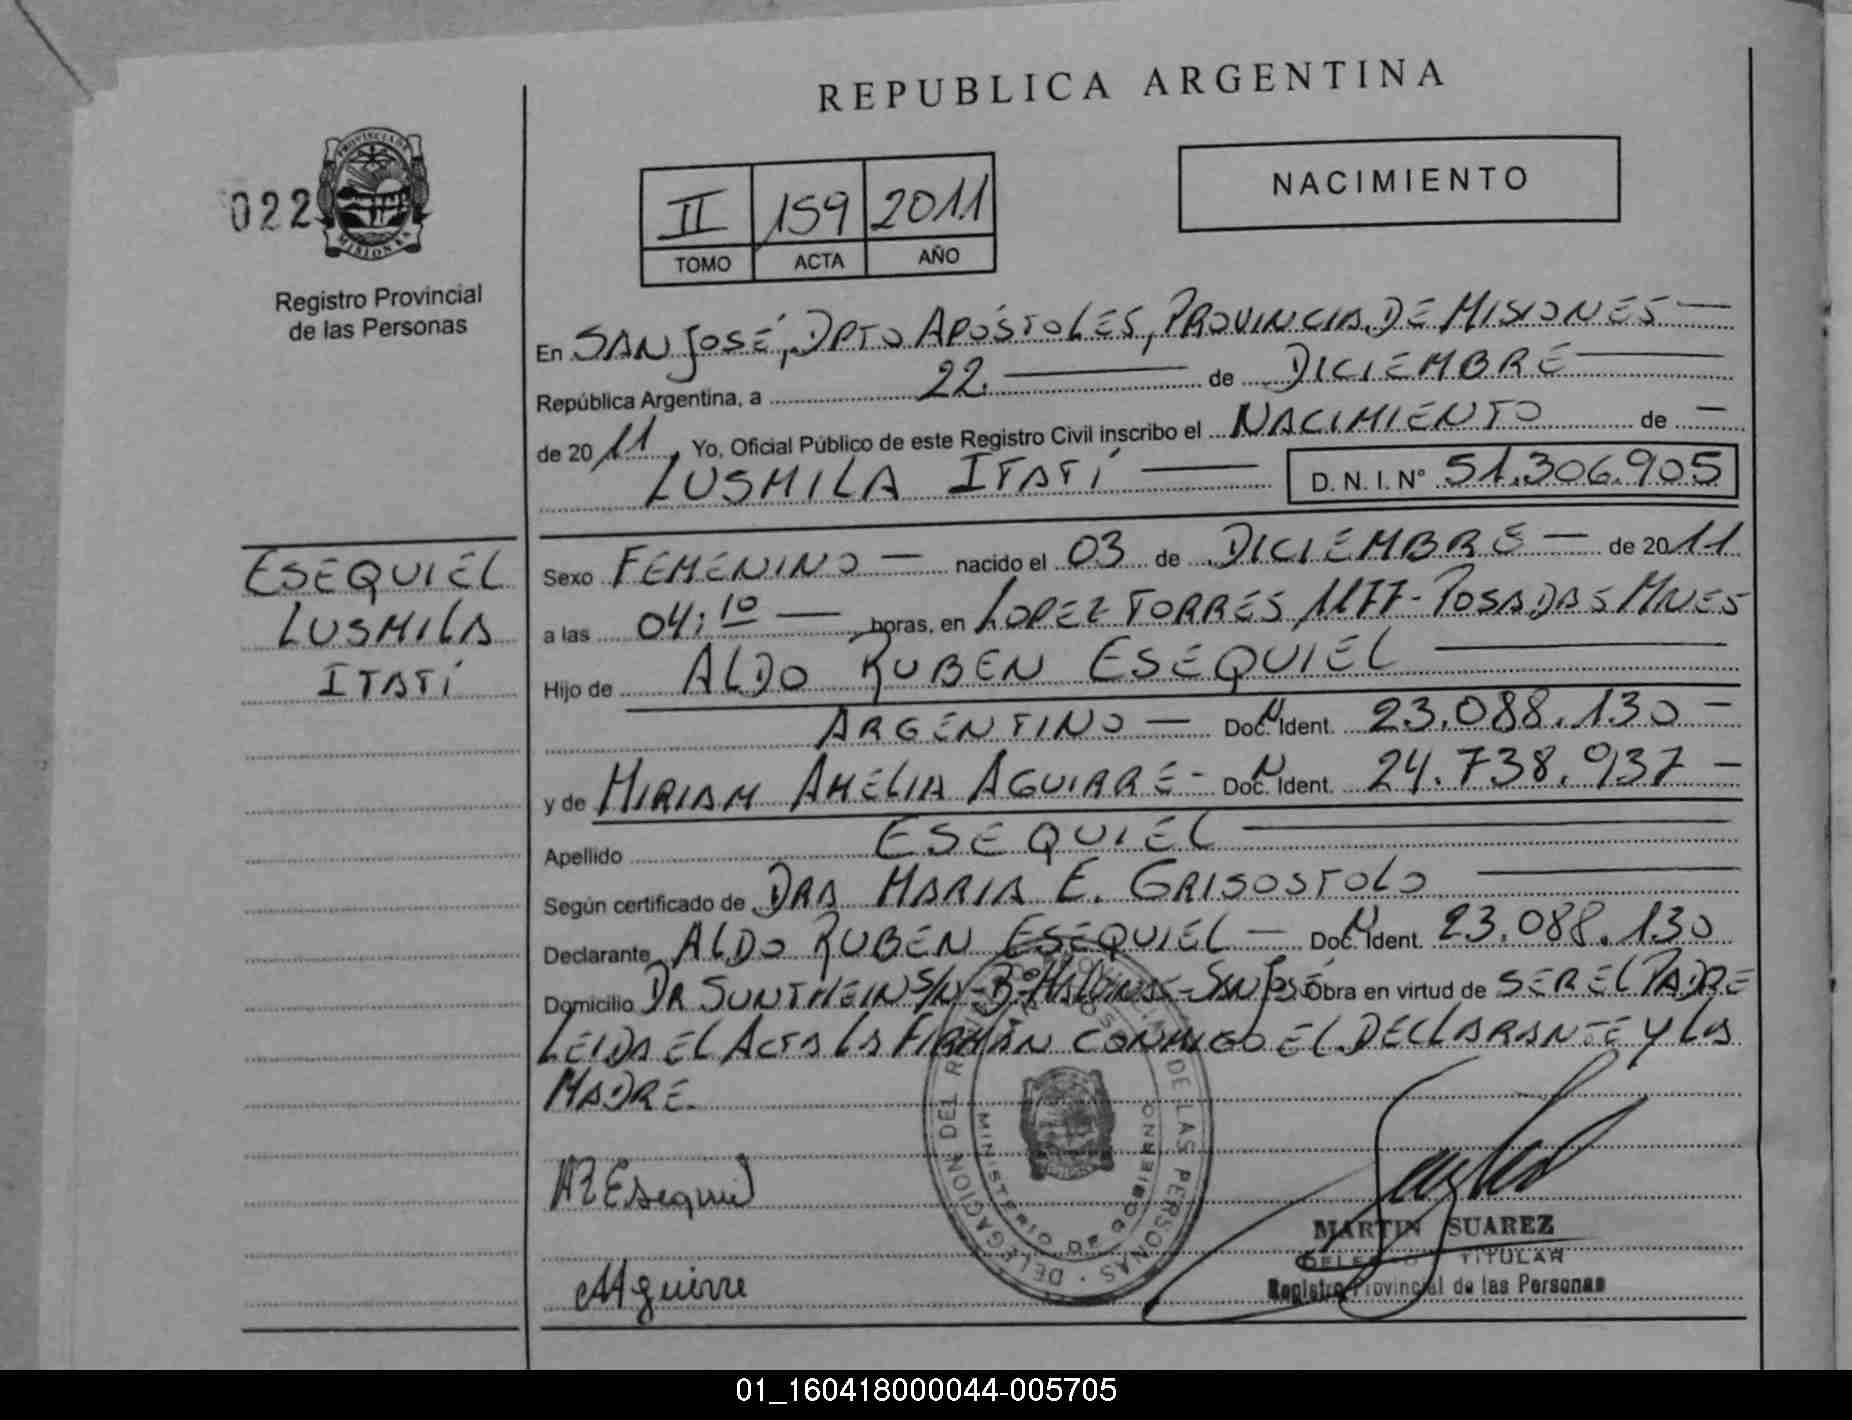 REPUBLICA ARGENTINA
022
PROVINCIA DE
MISIONES
Registro Provincial
de las Personas
II 159 2011
TOMO ACTA AÑO
NACIMIENTO
En SAN JOSÉ, DPTO APÓSTOLES, PROVINCIA DE MISIONES —
República Argentina, a 22. — de DICIEMBRE —
de 2011 Yo, Oficial Público de este Registro Civil inscribo el NACIMIENTO de —
LUSMILA ITATÍ — D. N. I. Nº 51.306.905
ESEQUIEL
LUSMILA
ITATÍ
Sexo FEMENINO — nacido el 03 de DICIEMBRE — de 2011
a las 04:10 — horas, en LOPEZ TORRES 1177 - POSADAS MNES
Hijo de ALDO RUBEN ESEQUIEL —
ARGENTINO — Doc. N Ident. 23.088.130 —
y de MIRIAM AMELIA AGUIRRE - Doc. N Ident. 24.738.937 —
Apellido ESEQUIEL —
Según certificado de DRA MARIA E. GRISOSTOLO —
Declarante ALDO RUBEN ESEQUIEL — Doc. N Ident. 23.088.130
Domicilio DR SUNTHEIN S/N - Bº MALVINAS - SAN JOSÉ Obra en virtud de SER EL PADRE
LEIDA EL ACTA LA FIRMAN CONMIGO EL DECLARANTE Y LA
MADRE.
DELEGACION DEL DE LAS PERSONAS
MINISTERIO DE GOBIERNO
AREsequiel
MAguirre
MARTIN SUAREZ
TITULAR
Registro Provincial de las Personas
01_160418000044-005705